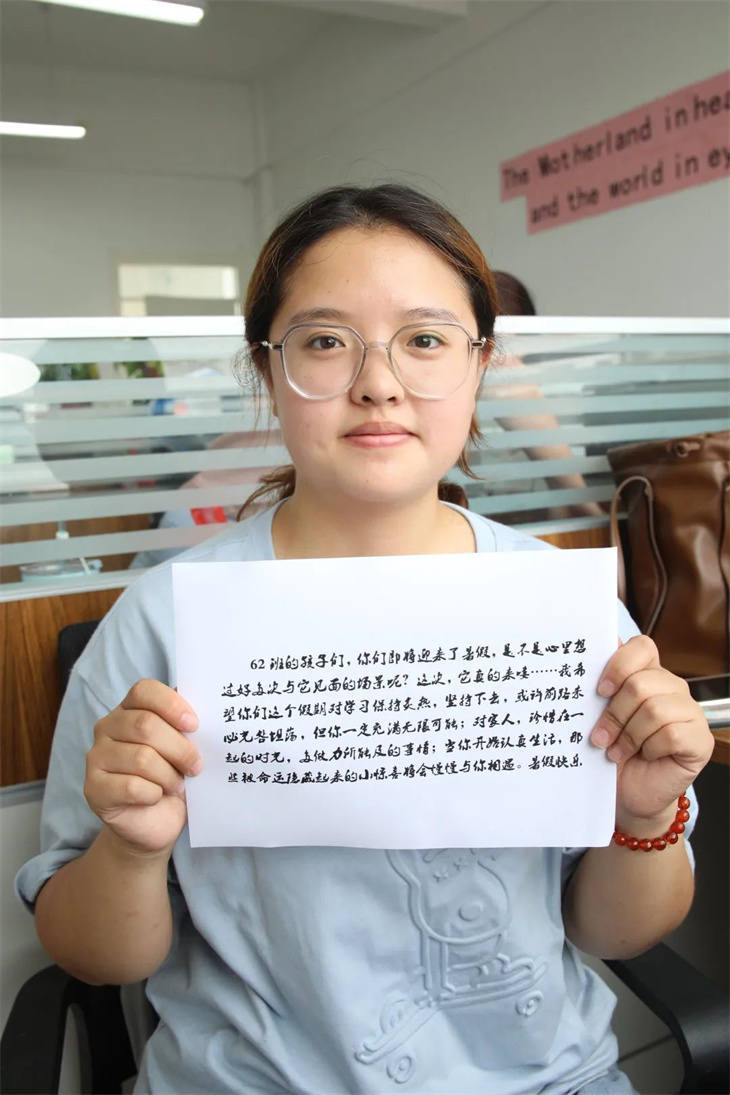 The Motherland in hea
and the world in ey
62班的孩子们，你们即将迎来了暑假，是不是心里想
过好多次与它见面的场景呢？这次，它真的来喽……我希
望你们这个假期对学习保持炙热，坚持下去，或许前路未
必光哲坦荡，但你一定充满无限可能；对家人，珍惜在一
起的时光，多做力所能及的事情；当你开始认真生活，那
些被命运隐藏起来的小惊喜将会慢慢与你相遇。暑假快乐